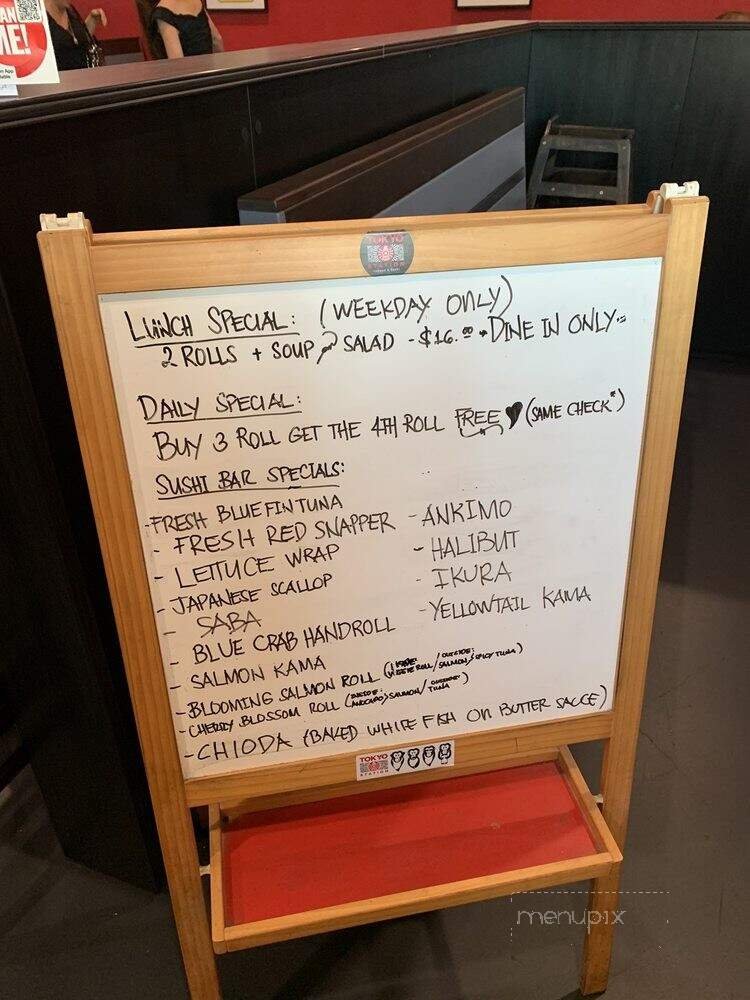 AN
ME!
TOKYO
STATION
LUNCH SPECIAL: (WEEKDAY ONLY)
2 ROLLS + SOUP & SALAD - $16.00 * DINE IN ONLY
DAILY SPECIAL:
BUY 3 ROLL GET THE 4TH ROLL FREE ♥ (SAME CHECK*)
SUSHI BAR SPECIALS:
- FRESH BLUEFIN TUNA
- FRESH RED SNAPPER
- LETTUCE WRAP
- JAPANESE SCALLOP
- SABA
- BLUE CRAB HANDROLL
- SALMON KAMA
- ANKIMO
- HALIBUT
- IKURA
- YELLOWTAIL KAMA
- BLOOMING SALMON ROLL (INSIDE: ROLL / OUTSIDE: SALMON, SPICY TUNA)
- CHERRY BLOSSOM ROLL (INSIDE: AVOCADO, SALMON / OUTSIDE: TUNA)
- CHIODA (BAKED WHITE FISH ON BUTTER SAUCE)
TOKYO
STATION
menupix